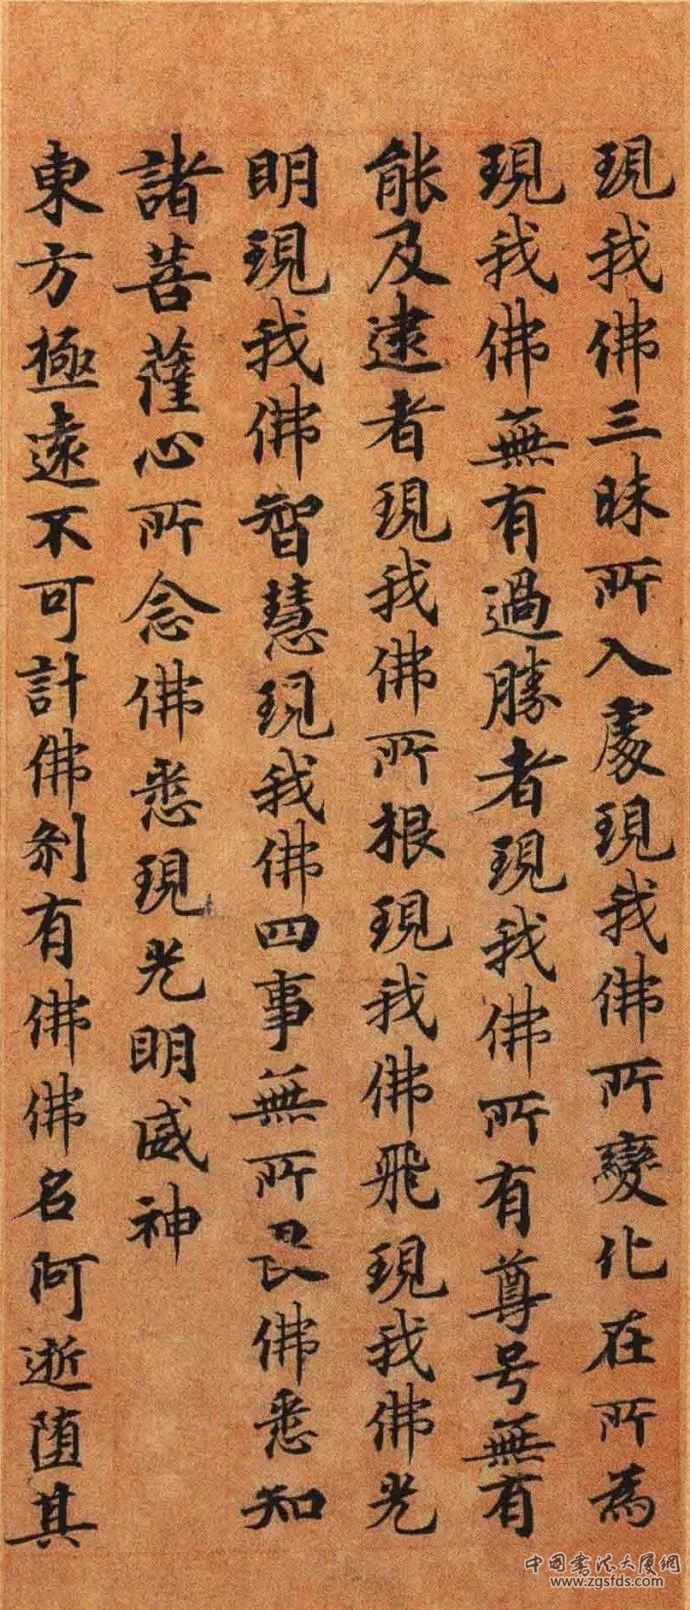 現我佛三昧所入處現我佛所變化在所為
現我佛無有過勝者現我佛所有尊号無有
能及逮者現我佛所根現我佛飛現我佛光
明現我佛智慧現我佛四事無所畏佛悉知
諸菩薩心所念佛悉現光明威神
東方極遠不可計佛刹有佛佛名阿逝墮其
中国书法大厦網
www.zgsfds.com